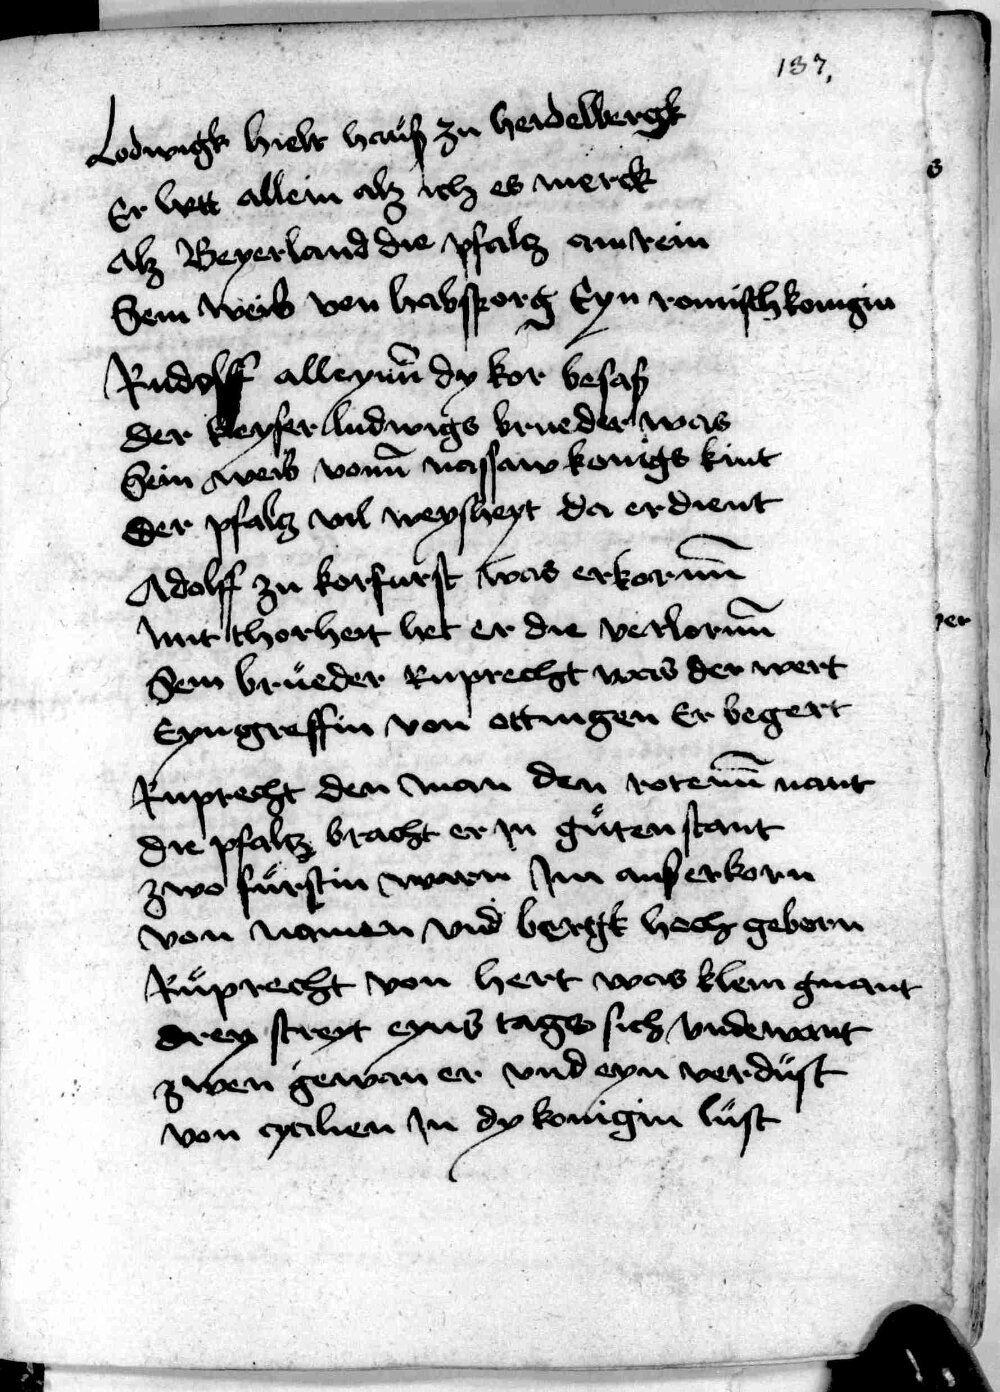 137.
Lodwigk hielt hauß zu heidelbergk
Er lett allein alß ich es merck
Alß Beyerland die pfaltz am rein
Sein weib von habsporg Eyn romisch konigin
Rudolff alleynn dy kor besaß
der keyser ludwigs brueder was
Sein weib vonn nassaw konigs kint
der pfaltz vil weysheyt da erdient
Adolff zu korfurst was erkornn
Mit thorheit het er die verlornn
Sein brüeder Ruprecht was der wert
Eyn greffin von ottingen Er begert
Ruprecht den man den rotenn nant
die pfaltz bracht er in güten stant
zwo fürstin warn Im auß erkorn
von namen vnd bergk hoch geborn
Rüprecht von hert was klem gnant
drey streyt eyns tags sich vndewant
zwen gewan er vnd eyn verdüst
von cycilien In dy konigin lüst